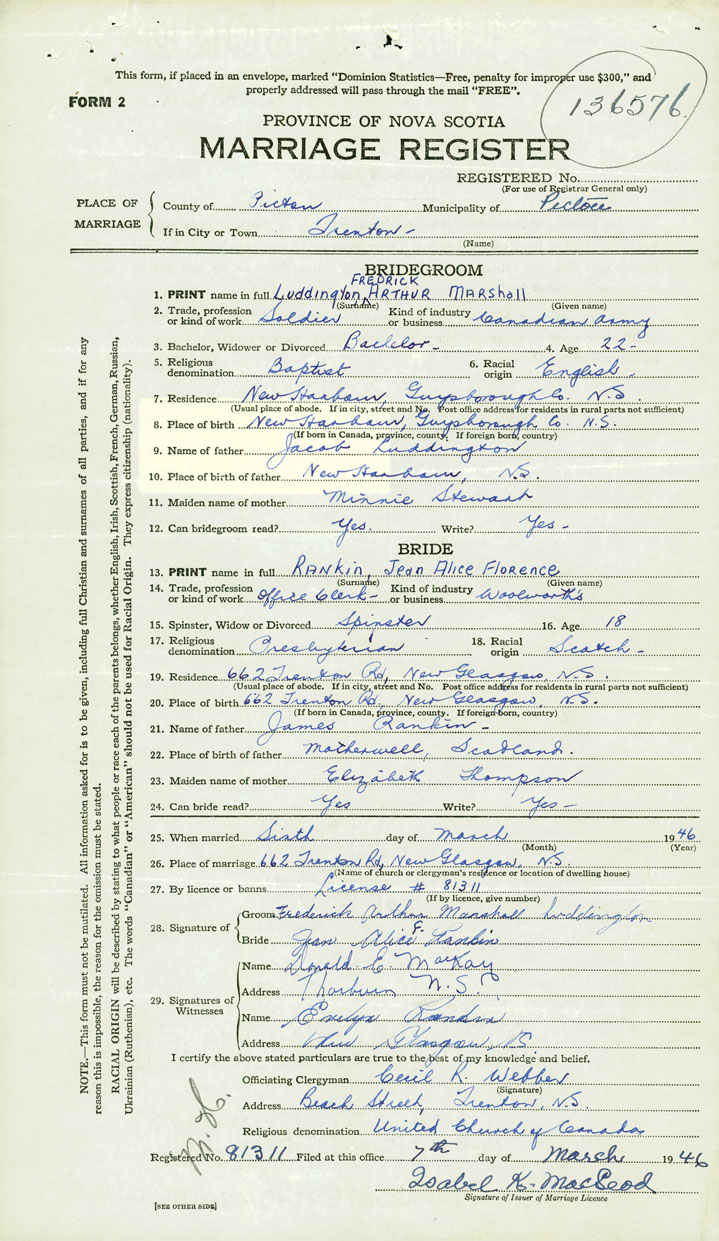 This form, if placed in an envelope, marked "Dominion Statistics—Free, penalty for improper use $300," and
properly addressed will pass through the mail "FREE".
FORM 2
136576
PROVINCE OF NOVA SCOTIA
MARRIAGE REGISTER
REGISTERED No.
(For use of Registrar General only)
PLACE OF MARRIAGE
County of Pictou Municipality of Pictou
If in City or Town Trenton -
(Name)
BRIDEGROOM
FREDRICK
1. PRINT name in full Luddington, ARTHUR MARSHAll
(Surname) (Given name)
2. Trade, profession or kind of work Soldier Kind of industry or business Canadian Army
3. Bachelor, Widower or Divorced Bachelor - 4. Age 22 -
5. Religious denomination Baptist 6. Racial origin English -
7. Residence New Harbour, Guysborough Co. N.S.
(Usual place of abode. If in city, street and No. Post office address for residents in rural parts not sufficient)
8. Place of birth New Harbour, Guysborough Co. N.S.
(If born in Canada, province, county. If foreign born, country)
9. Name of father Jacob Luddington
10. Place of birth of father New Harbour, N.S.
11. Maiden name of mother Minnie Stewart
12. Can bridegroom read? Yes. Write? Yes -
BRIDE
13. PRINT name in full RANKIN, Jean Alice Florence
(Surname) (Given name)
14. Trade, profession or kind of work Office Clerk - Kind of industry or business Woolworth's
15. Spinster, Widow or Divorced Spinster 16. Age 18
17. Religious denomination Presbyterian 18. Racial origin Scotch -
19. Residence 662 Trenton Rd, New Glasgow, N.S.
(Usual place of abode. If in city, street and No. Post office address for residents in rural parts not sufficient)
20. Place of birth 662 Trenton Rd, New Glasgow, N.S.
(If born in Canada, province, county. If foreign born, country)
21. Name of father James Rankin -
22. Place of birth of father Motherwell, Scotland.
23. Maiden name of mother Elizabeth Thompson
24. Can bride read? Yes Write? Yes -
25. When married Sixth day of March 19 46
(Month) (Year)
26. Place of marriage 662 Trenton Rd, New Glasgow, N.S.
(Name of church or clergyman's residence or location of dwelling house)
27. By licence or banns License # 81311
(If by licence, give number)
28. Signature of
Groom Frederick Arthur Marshall Luddington
Bride Jean Alice F. Rankin
29. Signatures of Witnesses
Name Donald E MacKay
Address Thorburn N.S.
Name Evelyn Rankin
Address New Glasgow, NS
I certify the above stated particulars are true to the best of my knowledge and belief.
Officiating Clergyman Cecil R. Webber
(Signature)
Address Beach Street, Trenton, N.S.
Religious denomination United Church of Canada
Registered No. 81311 Filed at this office 7th day of March 19 46
Isabel K. MacLeod
Signature of Issuer of Marriage Licence
[SEE OTHER SIDE]
NOTE.—This form must not be mutilated. All information asked for is to be given, including full Christian and surnames of all parties, and if for any
reason this is impossible, the reason for the omission must be stated.
RACIAL ORIGIN will be described by stating to what people or race each of the parents belongs, whether English, Irish, Scottish, French, German, Russian,
Ukrainian (Ruthenian), etc. The words "Canadian" or "American" should not be used for Racial Origin. They express citizenship (nationality).